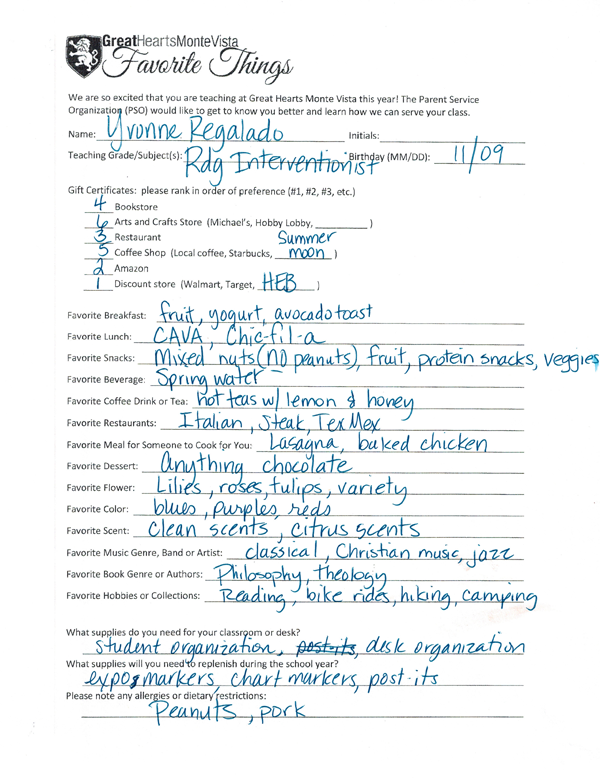 GreatHeartsMonteVista
Favorite Things
We are so excited that you are teaching at Great Hearts Monte Vista this year! The Parent Service
Organization (PSO) would like to get to know you better and learn how we can serve your class.
Name: Yvonne Regalado Initials:
Teaching Grade/Subject(s): Rdg Interventionist Birthday (MM/DD): 11/09
Gift Certificates: please rank in order of preference (#1, #2, #3, etc.)
4 Bookstore
6 Arts and Crafts Store (Michael's, Hobby Lobby, __________ )
3 Restaurant
5 Coffee Shop (Local coffee, Starbucks, Summer moon )
2 Amazon
1 Discount store (Walmart, Target, HEB )
Favorite Breakfast: fruit, yogurt, avocado toast
Favorite Lunch: CAVA, Chic-fil-a
Favorite Snacks: Mixed nuts (no peanuts), fruit, protein snacks, veggies
Favorite Beverage: Spring water
Favorite Coffee Drink or Tea: hot teas w/ lemon & honey
Favorite Restaurants: Italian, Steak, Tex Mex
Favorite Meal for Someone to Cook for You: Lasagna, baked chicken
Favorite Dessert: anything chocolate
Favorite Flower: Lilies, roses, tulips, variety
Favorite Color: blues, purples, reds
Favorite Scent: clean scents, citrus scents
Favorite Music Genre, Band or Artist: classical, Christian music, jazz
Favorite Book Genre or Authors: Philosophy, theology
Favorite Hobbies or Collections: Reading, bike rides, hiking, camping
What supplies do you need for your classroom or desk?
student organization, post-its, desk organization
What supplies will you need to replenish during the school year?
expo markers, chart markers, post-its
Please note any allergies or dietary restrictions:
Peanuts, pork